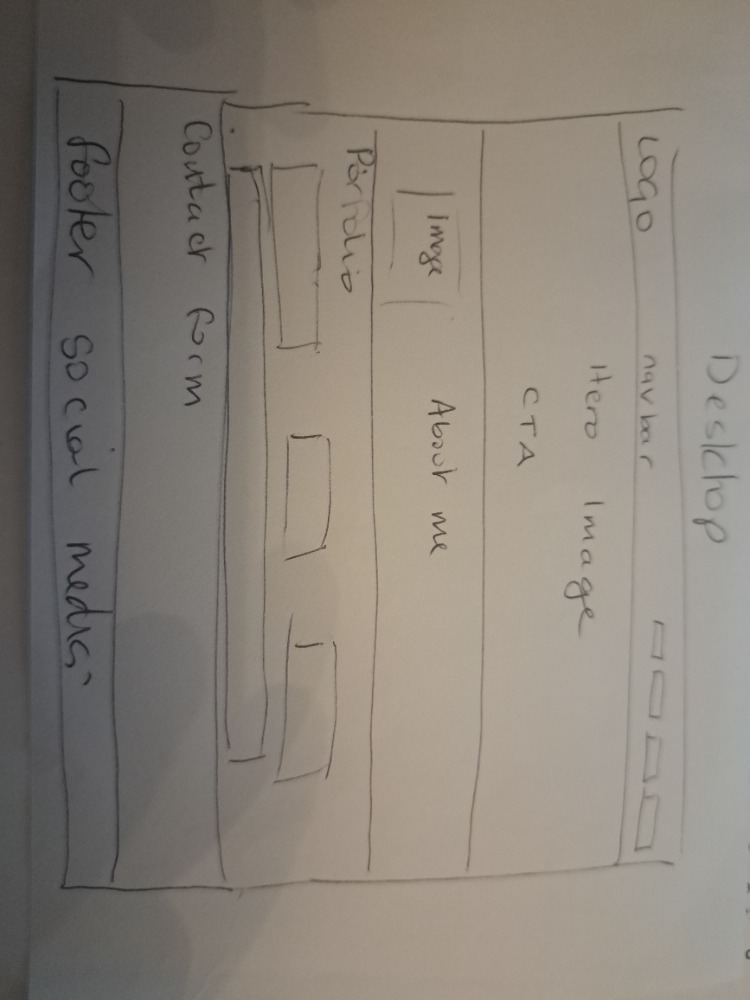 Desktop
LOGO navbar
Hero Image
CTA
Image About me
Portfolio
Contact form
footer social media